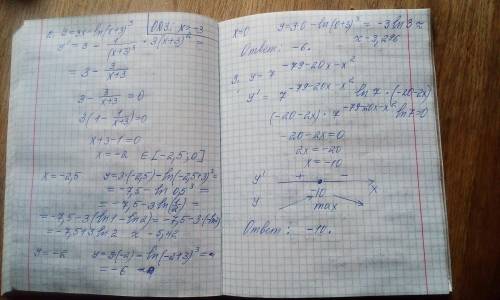 2. y=3x-ln(x+3)³ ОДЗ: x>-3
y' = 3 - 1/(x+3)³ · 3(x+3)² =
= 3 - 3/(x+3)
3 - 3/(x+3) = 0
3(1 - 1/(x+3))=0
x+3-1=0
x=-2 ∈[-2,5;0]
x=-2,5 y=3·(-2,5)-ln(-2,5+3)³=
= -7,5-ln 0,5³ =
= -7,5-3ln(1/2)=
= -7,5-3(ln1-ln2)= -7,5-3(-ln2)
= -7,5+3ln2 ≈ -5,42
y=3(-2)-ln(-2+3)³=
= -6
x=0 y=3·0-ln(0+3)³ = -3ln3 ≈
≈ -3,296
Ответ: -6.
3. y=7^(-79-20x-x²)
y' = 7^(-79-20x-x²) ln7·(-20-2x)
(-20-2x)·7^(-79-20x-x²) ln7=0
-20-2x=0
2x=-20
x=-10
y' + - x
-10
y max
Ответ: -10.